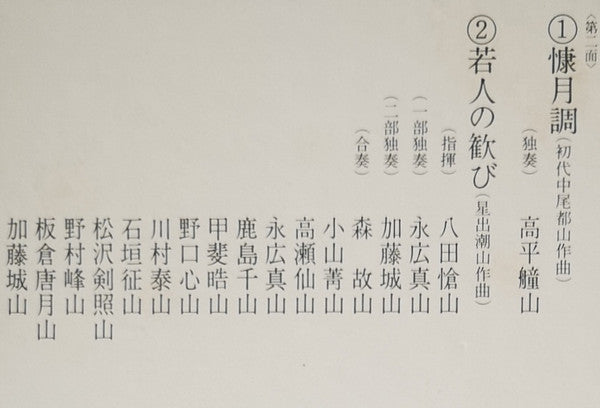 〈第二面〉
①慷月調(初代中尾都山作曲)
(独奏) 高平艟山
②若人の歓び(星出潮山作曲)
(指揮) 八田愴山
(一部独奏) 永広真山
(二部独奏) 加藤城山
(合奏) 森 故山
小山菁山
高瀬仙山
永広真山
鹿島千山
甲斐晧山
野口心山
川村泰山
石垣征山
松沢剣照山
野村峰山
板倉唐月山
加藤城山